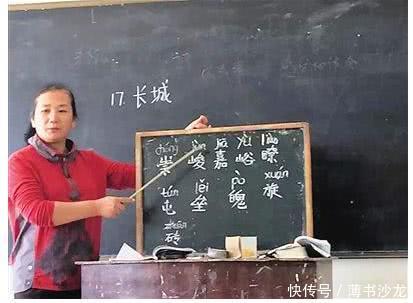 17.长城
chóng jùn
崇 峻 嘉 峪 瞭
tún lěi pò xuán
屯 垒 魄 旋
zhuān
砖
快传号 / 薄书沙龙